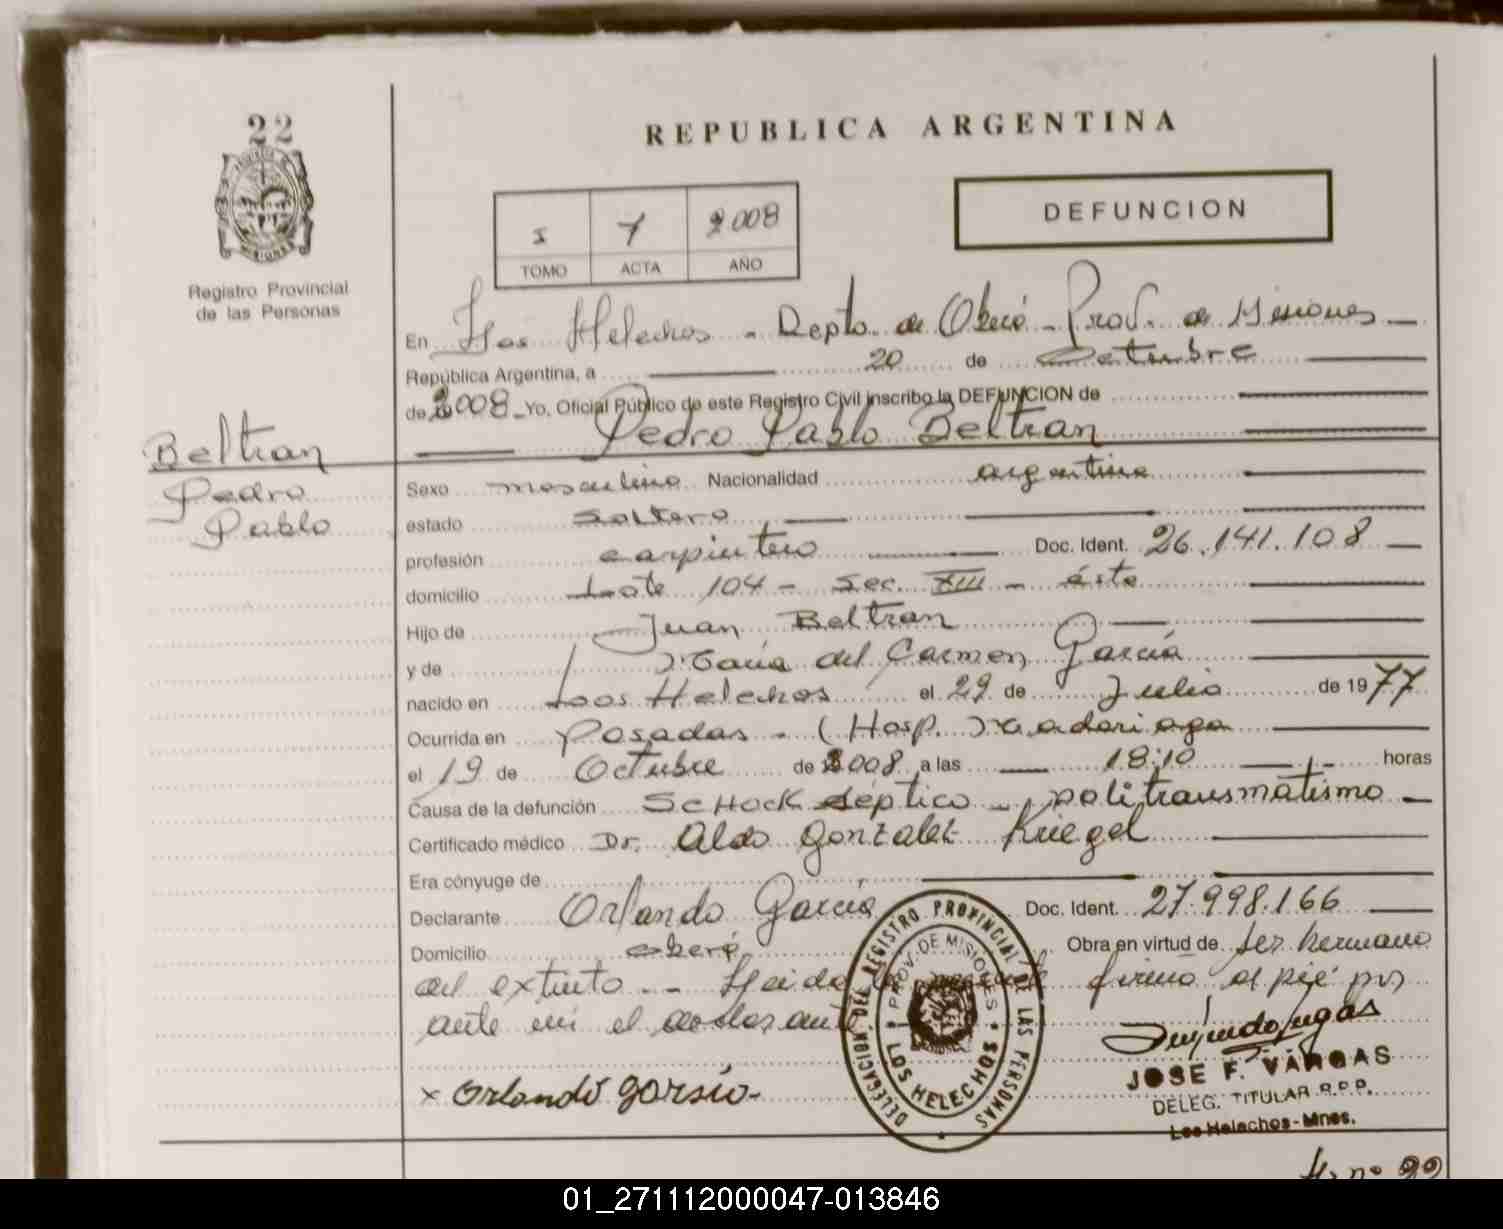 22
REPUBLICA ARGENTINA
DEFUNCION
I 7 2008
TOMO ACTA AÑO
Registro Provincial
de las Personas
En Los Helechos - Depto. de Oberá - Prov. de Misiones
República Argentina, a 20 de
de 2008 Yo, Oficial Público de este Registro Civil inscribo la DEFUNCION de
Pedro Pablo Beltran
Beltran
Pedro
Pablo
Sexo masculino Nacionalidad argentina
estado Soltero
profesión carpintero Doc. Ident. 26.141.108
domicilio Lote 104 - Sec. XIII - éste
Hijo de Juan Beltran
y de María del Carmen García
nacido en Los Helechos el 29 de Julio de 1977
Ocurrida en Posadas - (Hosp. Madariaga
el 19 de Octubre de 2008 a las 18:10 horas
Causa de la defunción Schock séptico - politraumatismo
Certificado médico Dr. Aldo Gonzalez Kriegel
Era cónyuge de
Declarante Orlando García Doc. Ident. 27.998.166
Domicilio Oberá Obra en virtud de ser hermano
del extinto -- Leida la presente firma al pié por
ante mi el declarante
x Orlando garsia
DELEGACION DEL REGISTRO PROVINCIAL DE LAS PERSONAS
PROV. DE MISIONES
LOS HELECHOS
JOSE F. VARGAS
DELEG. TITULAR R.P.P.
Los Helechos - Mnes.
01_271112000047-013846